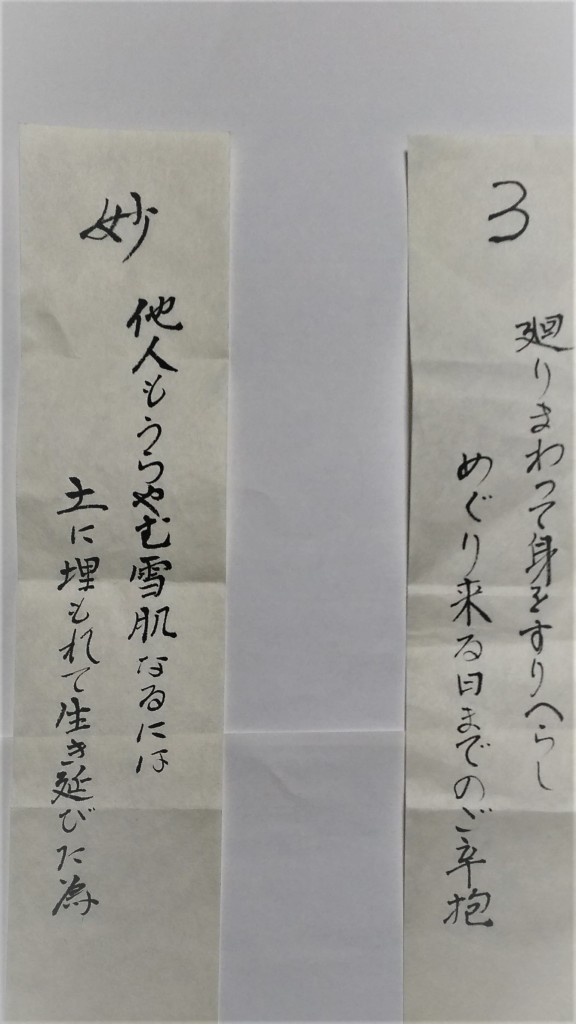 ろ
廻りまわって身をすりへらし
めぐり来る日までのご辛抱
妙
他人もうらやむ雪肌なるには
土に埋もれて生き延びた為